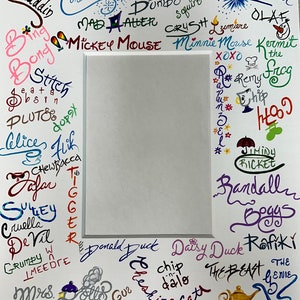 Dumbo
Squirt
OLAF
MAD HATTER
CRUSH
Lumiere
Mickey Mouse
Minnie Mouse
Kermit the frog
Bing Bong
XOXO
Rapunzel
Remy
Stitch
Chip
PLUTO
DOPEY
Goofy
Alice
Flik
CHEWBACCA
JIMINY CRICKET
Jafar
TIGGER
Randall Boggs
SULLEY
Cruella DeVil
RAFIKI
Donald Duck
Daisy Duck
GRUMPY
chip-n-dale
THE BEAST
THE GENIE
Mrs
Cheshire Cat